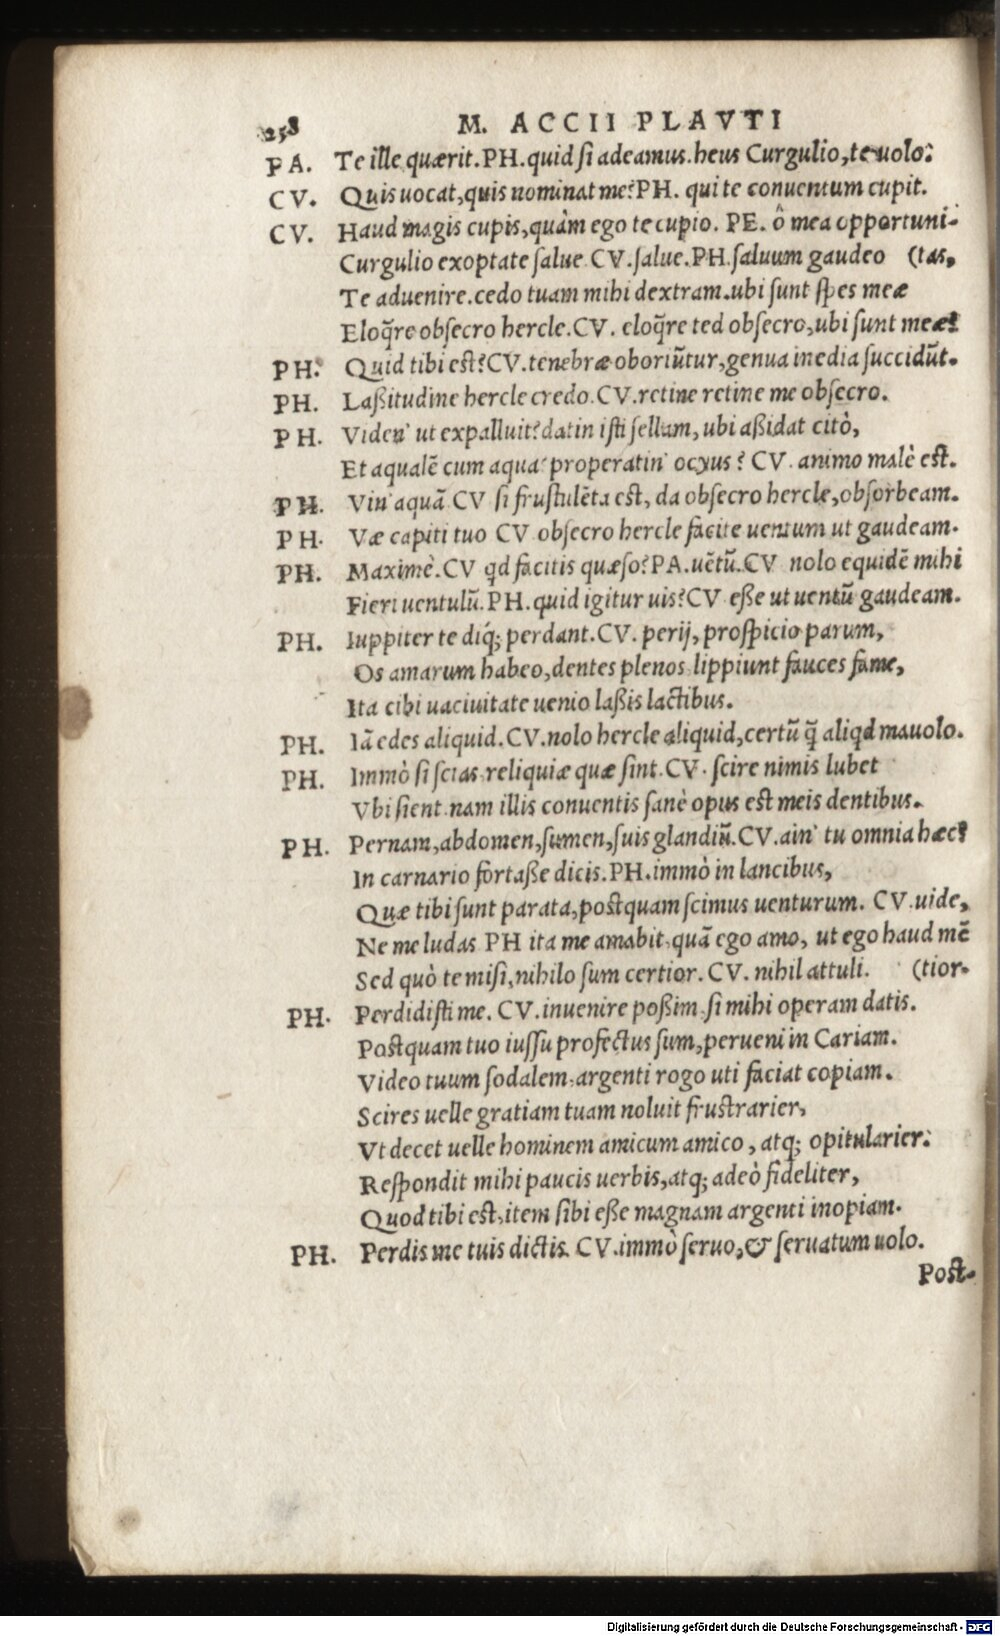 258 M. ACCII PLAVTI
PA. Te ille quærit. PH. quid ſi adeamus. heus Curgulio, te uolo.
CV. Quis uocat, quis nominat me? PH. qui te conuentum cupit.
CV. Haud magis cupis, quàm ego te cupio. PE. ô mea opportuni-
Curgulio exoptate ſalue. CV. ſalue. PH. ſaluum gaudeo (tas,
Te aduenire. cedo tuam mihi dextram. ubi ſunt ſpes meæ
Eloq̃re obſecro hercle. CV. eloq̃re ted obſecro, ubi ſunt meæ?
PH. Quid tibi est? CV. tenebræ oboriũtur, genua inedia ſuccidũt.
PH. Laßitudine hercle credo. CV. retine retine me obſecro.
PH. Viden' ut expalluit? datin iſti ſellam, ubi aßidat citò,
Et aqualẽ cum aqua? properatin' ocyus? CV. animo malè est.
PH. Vin' aquã CV ſi fruſtulẽta est, da obſecro hercle, obſorbeam.
PH. Væ capiti tuo CV obſecro hercle facite uentum ut gaudeam.
PH. Maximè. CV qd facitis quæſo? PA. uẽtũ. CV nolo equidẽ mihi
Fieri uentulũ. PH. quid igitur uis? CV eße ut uentũ gaudeam.
PH. Iuppiter te diq́; perdant. CV. perij, proſpicio parum,
Os amarum habeo, dentes plenos lippiunt fauces fame,
Ita cibi uaciuitate uenio laßis lactibus.
PH. Iã edes aliquid. CV. nolo hercle aliquid, certũ q̃ aliqd mauolo.
PH. Immò ſi ſcias reliquiæ quæ ſint. CV. ſcire nimis lubet
Vbi ſient. nam illis conuentis ſanè opus est meis dentibus.
PH. Pernam, abdomen, ſumen, ſuis glandiũ. CV. ain' tu omnia hæc?
In carnario fortaße dicis. PH. immò in lancibus,
Quæ tibi ſunt parata, postquam ſcimus uenturum. CV. uide,
Ne me ludas PH ita me amabit, quã ego amo, ut ego haud mẽ
Sed quò te miſi, nihilo ſum certior. CV. nihil attuli. (tior.
PH. Perdidiſti me. CV. inuenire poßim, ſi mihi operam datis.
Postquam tuo iuſſu profectus ſum, perueni in Cariam.
Video tuum ſodalem, argenti rogo uti faciat copiam.
Scires uelle gratiam tuam noluit fruſtrarier,
Vt decet uelle hominem amicum amico, atq; opitularier.
Reſpondit mihi paucis uerbis, atq; adeò fideliter,
Quod tibi est, item ſibi eße magnam argenti inopiam.
PH. Perdis me tuis dictis. CV. immò ſeruo, & ſeruatum uolo.
Post-
Digitalisierung gefördert durch die Deutsche Forschungsgemeinschaft - DFG